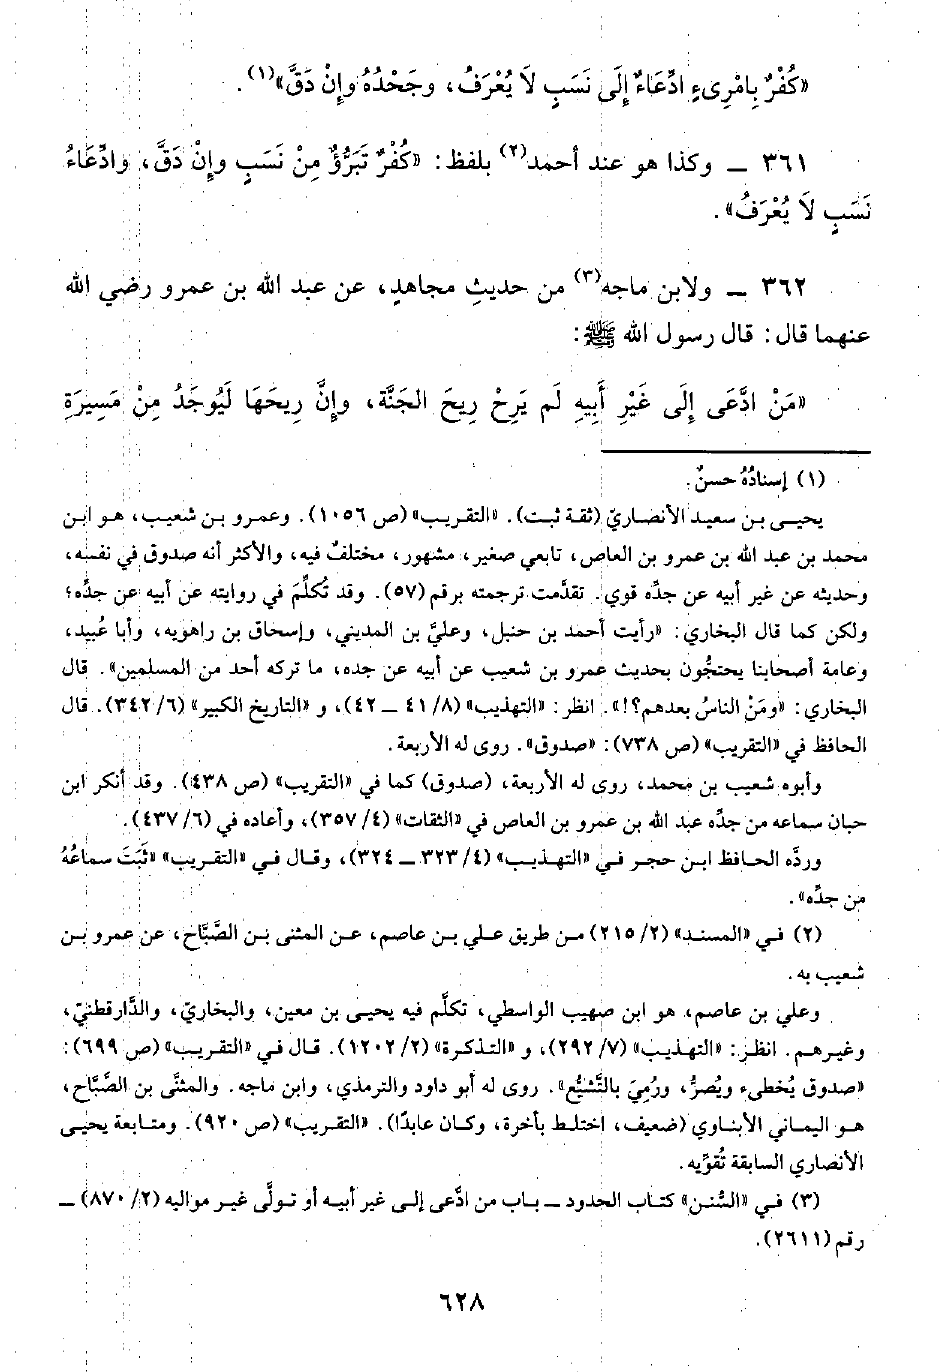 «كُفْرٌ بِامْرِىءٍ ادِّعَاءٌ إِلَى نَسَبٍ لاَ يُعْرَفُ، وجَحْدُهُ وإِنْ دَقَّ»(١).
٣٦١ ــ وكذا هو عند أحمد(٢) بلفظ: «كُفْرٌ تَبَرُّؤٌ مِنْ نَسَبٍ وإِنْ دَقَّ، وادِّعَاءُ
نَسَبٍ لاَ يُعْرَفُ».
٣٦٢ ــ ولابن ماجه(٣) من حديثِ مجاهدٍ، عن عبد الله بن عمرو رضي الله
عنهما قال: قال رسول الله ﷺ:
«مَنْ ادَّعَى إِلَى غَيْرِ أَبِيهِ لَم يَرِحْ رِيحَ الجَنَّة، وإِنَّ رِيحَهَا لَيُوجَدُ مِنْ مَسِيرَةِ
(١) إسنادُهُ حسنٌ.
يحيى بن سعيد الأنصاريّ (ثقة ثبت). «التقريب» (ص ١٠٥٦). وعمرو بن شعيب، هو ابن
محمد بن عبد الله بن عمرو بن العاص، تابعي صغير، مشهور، مختلفٌ فيه، والأكثر أنه صدوق في نفسه،
وحديثه عن غير أبيه عن جدِّه قوي. تقدَّمت ترجمته برقم (٥٧). وقد تُكلِّمَ في روايته عن أبيه عن جدِّه؛
ولكن كما قال البخاري: «رأيت أحمد بن حنبل، وعليَّ بن المديني، وإسحاق بن راهويه، وأبا عُبيد،
وعامة أصحابنا يحتجُّون بحديث عمرو بن شعيب عن أبيه عن جده، ما تركه أحد من المسلمين». قال
البخاري: «ومَنْ الناسُ بعدهم؟!». انظر: «التهذيب» (٨/ ٤١ ــ ٤٢)، و «التاريخ الكبير» (٦/ ٣٤٢). قال
الحافظ في «التقريب» (ص ٧٣٨): «صدوق». روى له الأربعة.
وأبوه شعيب بن محمد، روى له الأربعة، (صدوق) كما في «التقريب» (ص ٤٣٨). وقد أنكر ابن
حبان سماعه من جدِّه عبد الله بن عمرو بن العاص في «الثقات» (٤/ ٣٥٧)، وأعاده في (٦/ ٤٣٧).
وردَّه الحافظ ابن حجر في «التهذيب» (٤/ ٣٢٣ ــ ٣٢٤)، وقال في «التقريب» «ثَبَتَ سماعُهُ
من جدِّه».
(٢) في «المسند» (٢/ ٢١٥) من طريق علي بن عاصم، عن المثنى بن الصَّبَّاح، عن عمرو بن
شعيب به.
وعلي بن عاصم، هو ابن صهيب الواسطي، تكلَّم فيه يحيى بن معين، والبخاريّ، والدَّارقطنيّ،
وغيرهم. انظر: «التهذيب» (٧/ ٢٩٢)، و «التذكرة» (٢/ ١٢٠٢). قال في «التقريب» (ص ٦٩٩):
«صدوق يُخطىء ويُصرُّ، ورُمِيَ بالتَّشيُّع». روى له أبو داود والترمذي، وابن ماجه. والمثنَّى بن الصَّبَّاح،
هو اليماني الأبناوي (ضعيف، اختلط بأخرة، وكان عابدًا). «التقريب» (ص ٩٢٠). ومتابعة يحيى
الأنصاري السابقة تُقوِّيه.
(٣) في «السُّنن» كتاب الحدود ــ باب من ادَّعى إلى غير أبيه أو تولَّى غير مواليه (٢/ ٨٧٠) ــ
رقم (٢٦١١).
٦٢٨